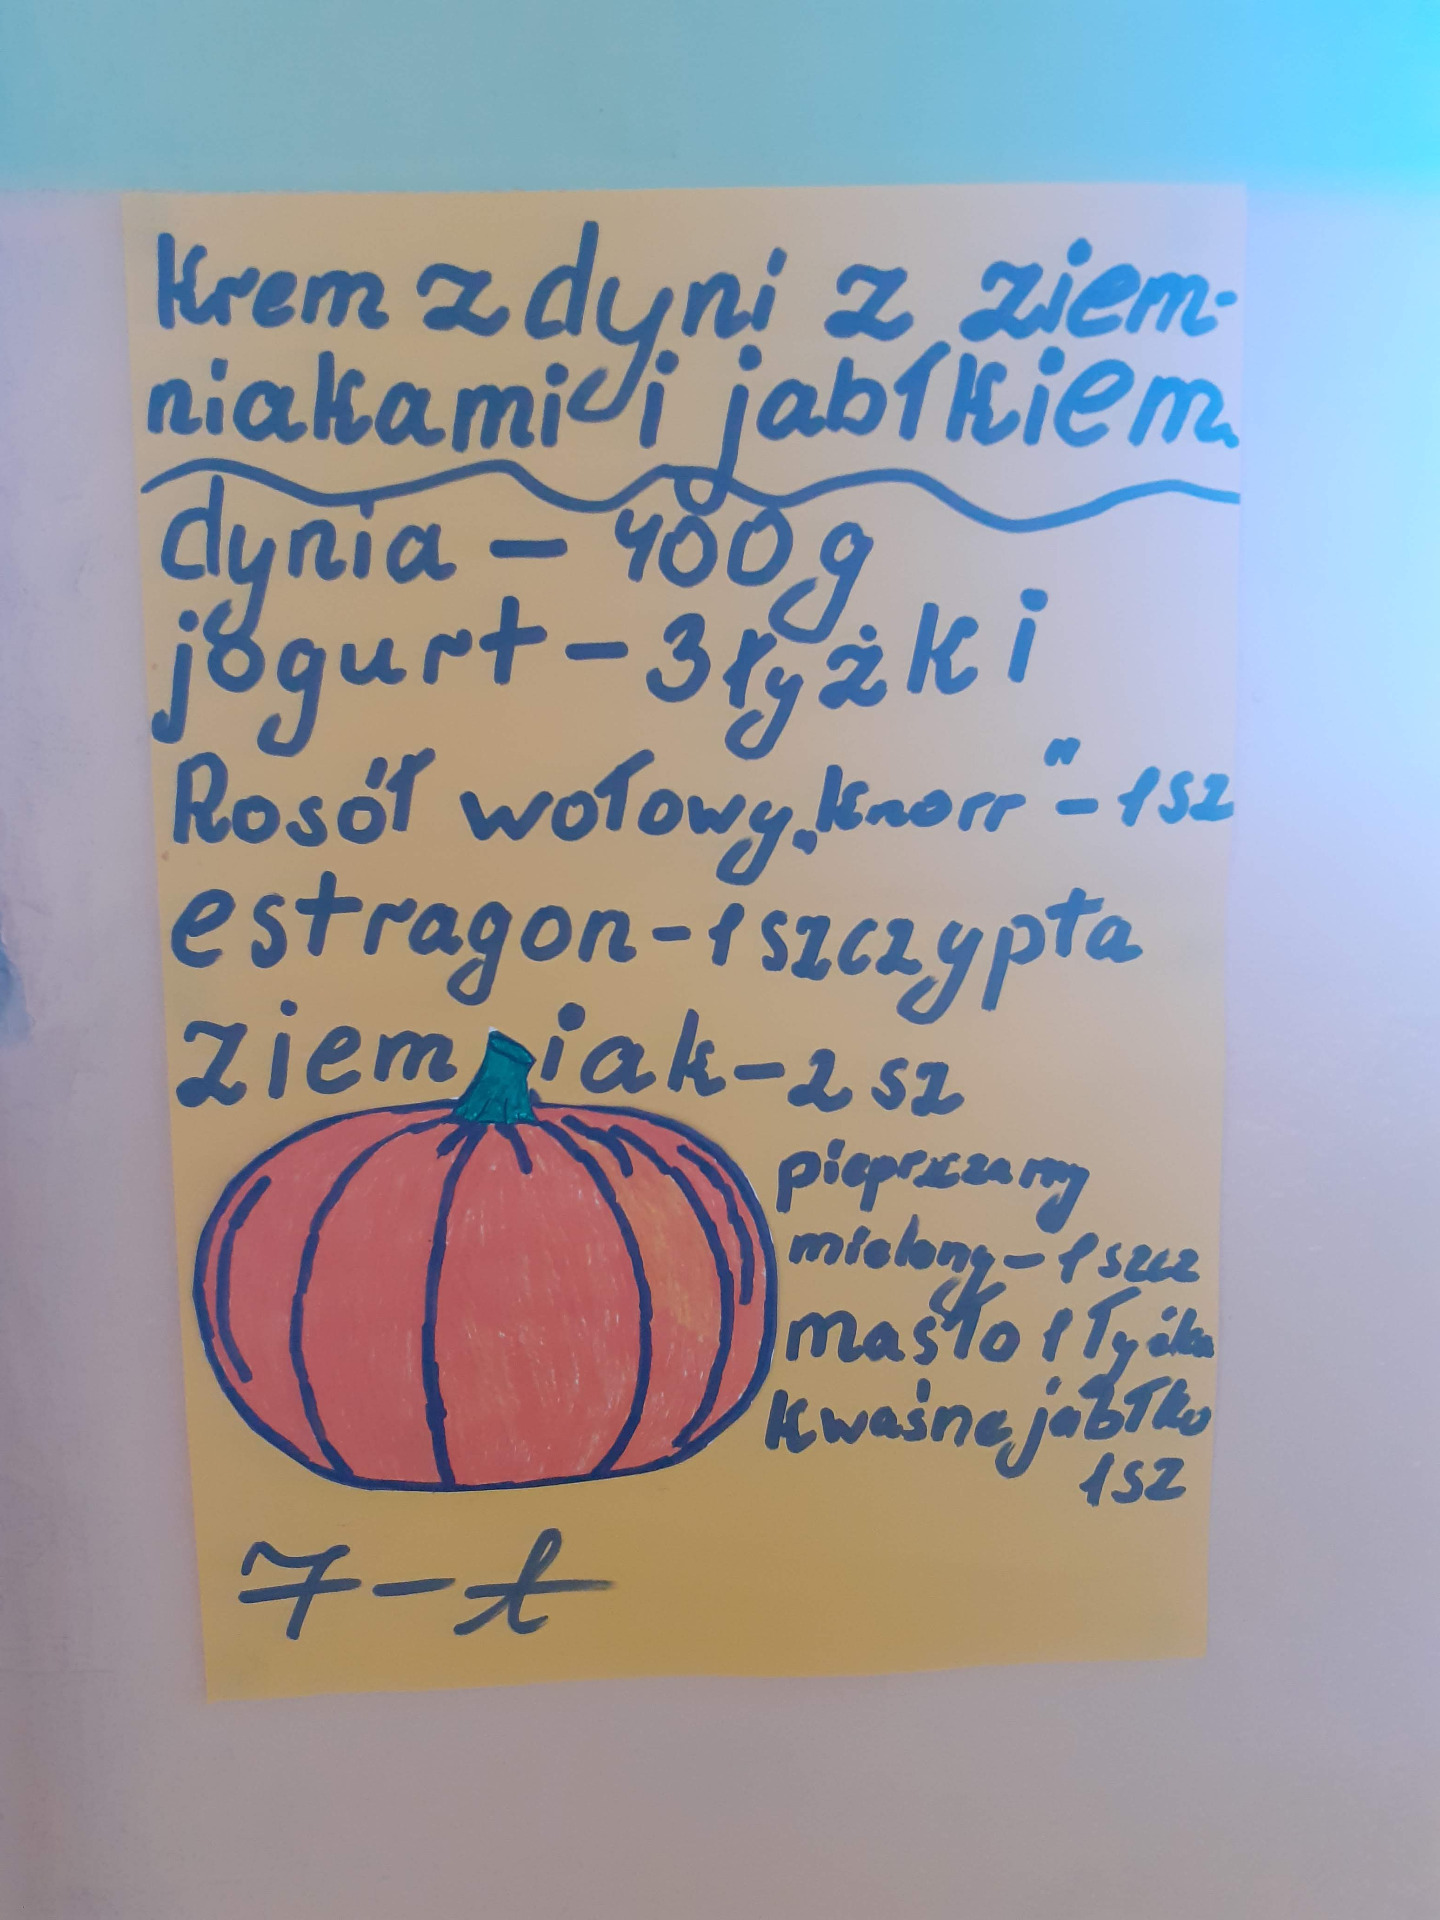 Krem z dyni z ziem-
niakami i jabłkiem
dynia - 400 g
jogurt - 3 łyżki
Rosół wołowy „Knorr" - 1 sz
estragon - 1 szczypta
ziemniak - 2 sz
pieprz czarny
mielony - 1 szcz
masło 1 łyżka
kwaśne jabłko
1 sz
7 - t